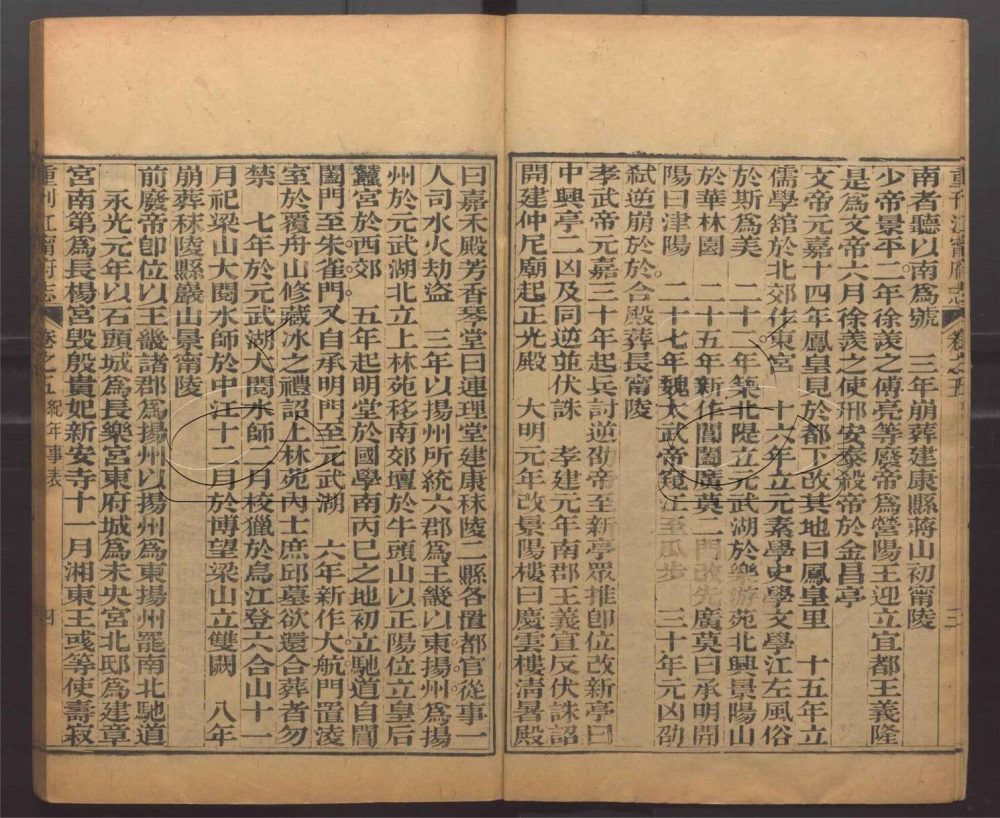 重刊江甯府志 卷之五 三
南者聽以南為號 三年崩葬建康縣蔣山初甯陵
少帝景平二年徐羨之傅亮等廢帝爲營陽王迎立宜都王義隆
是爲文帝六月徐羨之使邢安泰殺帝於金昌亭
文帝元嘉十四年鳳皇見於都下改其地曰鳳皇里 十五年立
儒學舘於北郊作東宮 十六年立元素學史學文學江左風俗
於斯爲美 二十二年築北隄立元武湖於樂游苑北興景陽山
於華林園 二十五年新作閶闔廣莫二門改先廣莫曰承明開
陽曰津陽 二十七年魏太武帝臨江至瓜步 三十年元凶劭
弑逆崩於合殿葬長甯陵
孝武帝元嘉三十年起兵討逆劭帝至新亭眾推卽位改新亭曰
中興亭二凶及同逆並伏誅 孝建元年南郡王義宣反伏誅詔
開建仲尼廟起正光殿 大明元年改景陽樓曰慶雲樓淸暑殿
曰嘉禾殿芳香琴堂曰連理堂建康秣陵二縣各置都官從事一
人司水火劫盜 三年以揚州所統六郡爲王畿以東揚州爲揚
州於元武湖北立上林苑移南郊壇於牛頭山以正陽位立皇后
蠶宮於西郊 五年起明堂於國學南丙巳之地初立馳道自閶
闔門至朱雀門又自承明門至元武湖 六年新作大航門置淩
室於覆舟山修藏冰之禮詔上林苑內士庶邱墓欲還合葬者勿
禁 七年於元武湖大閱水師二月校獵於烏江登六合山十一
月祀梁山大閱水師於中江十二月於博望梁山立雙闕 八年
崩葬秣陵縣巖山景甯陵
前廢帝卽位以王畿諸郡爲揚州以揚州爲東揚州罷南北馳道
永光元年以石頭城爲長樂宮東府城爲未央宮北邸爲建章
宮南第爲長楊宮毀殷貴妃新安寺十一月湘東王彧等使壽寂
重刊江甯府志 卷之五 紀年事表 四